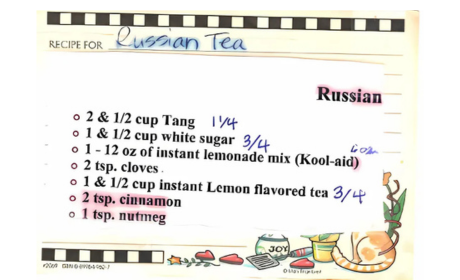 RECIPE FOR Russian Tea
Russian
2 & 1/2 cup Tang 1 1/4
1 & 1/2 cup white sugar 3/4
1 - 12 oz of instant lemonade mix (Kool-aid) 6 oz
2 tsp. cloves
1 & 1/2 cup instant Lemon flavored tea 3/4
2 tsp. cinnamon
1 tsp. nutmeg
JOY